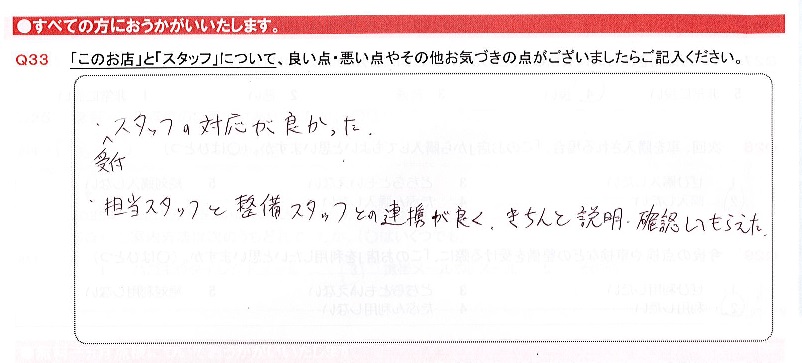 ●すべての方におうかがいいたします。
Q33 「このお店」と「スタッフ」について、良い点・悪い点やその他お気づきの点がございましたらご記入ください。
・スタッフの対応が良かった。
受付
・担当スタッフと整備スタッフとの連携が良く、きちんと説明・確認してもらえた。